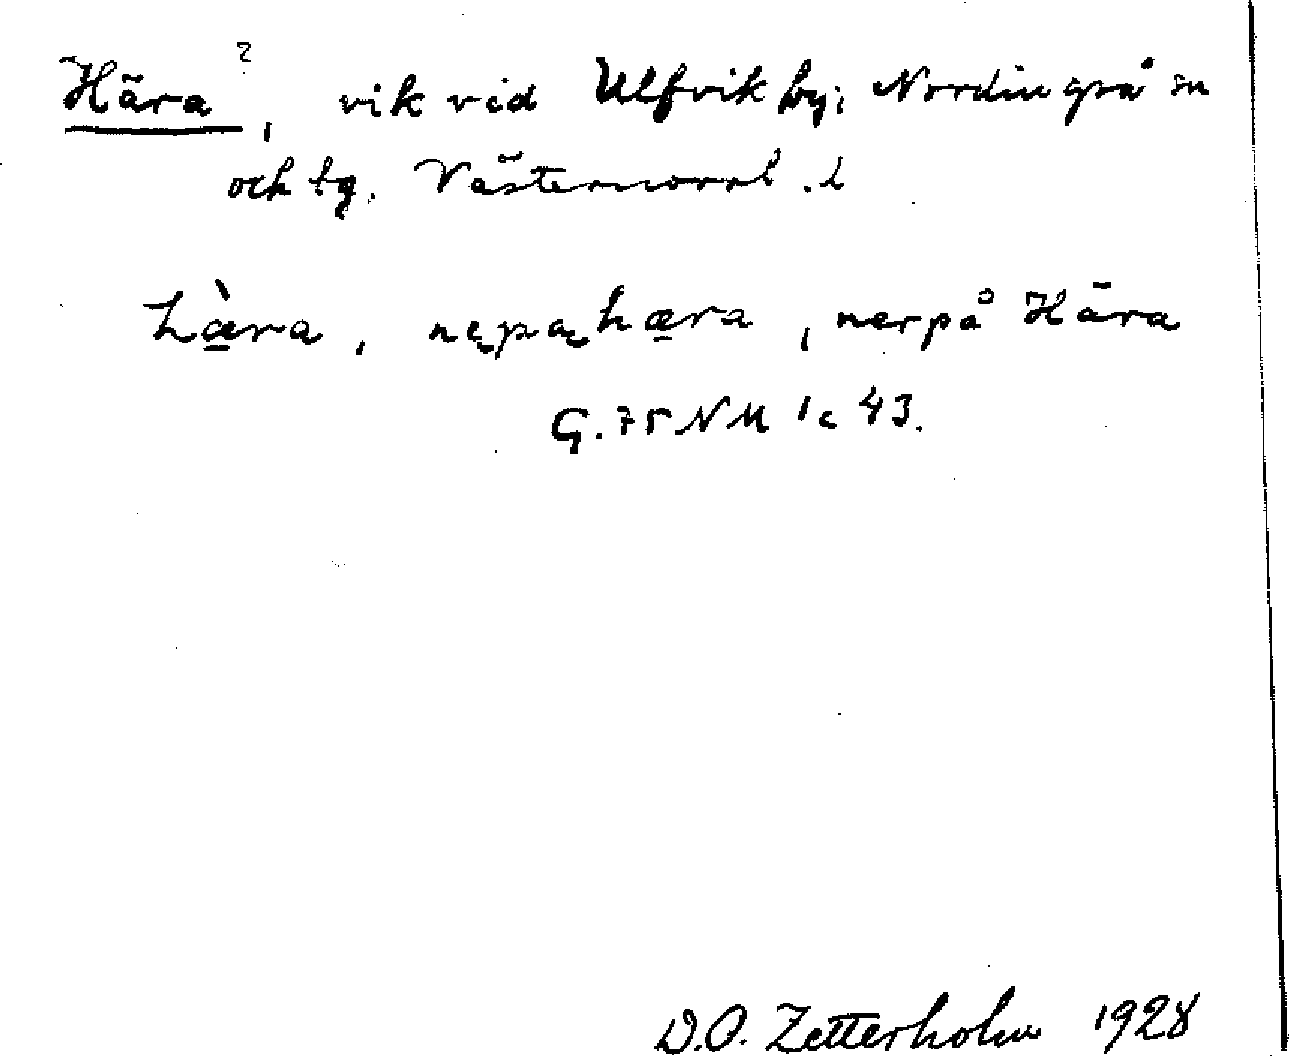 Hära?, vik vid Ulfvik by; Nordingrå sn
och tg. Västernorrl. l
hæ̀ra, nępąhæra, nerpå Hära
G. 75 NM 1c 43.
D.O. Zetterholm 1928